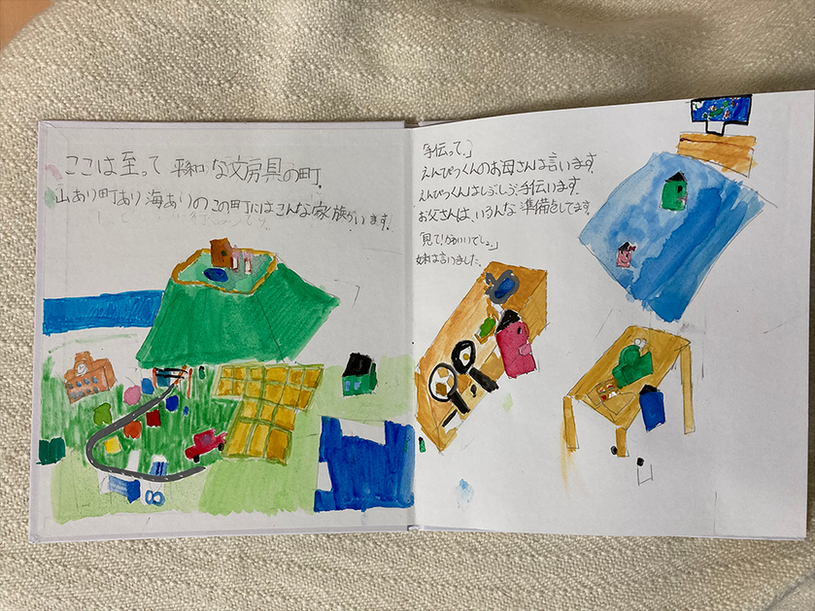 ここは至って平和な文房具の町。
山あり町あり海ありのこの町にはこんな家族がいます。
「手伝って。」
えんぴつくんのお母さんは言います。
えんぴつくんはしぶしぶ手伝います。
お父さんは、いろんな準備をしてます。
「見て!かわいいでしょ。」
妹は言いました。